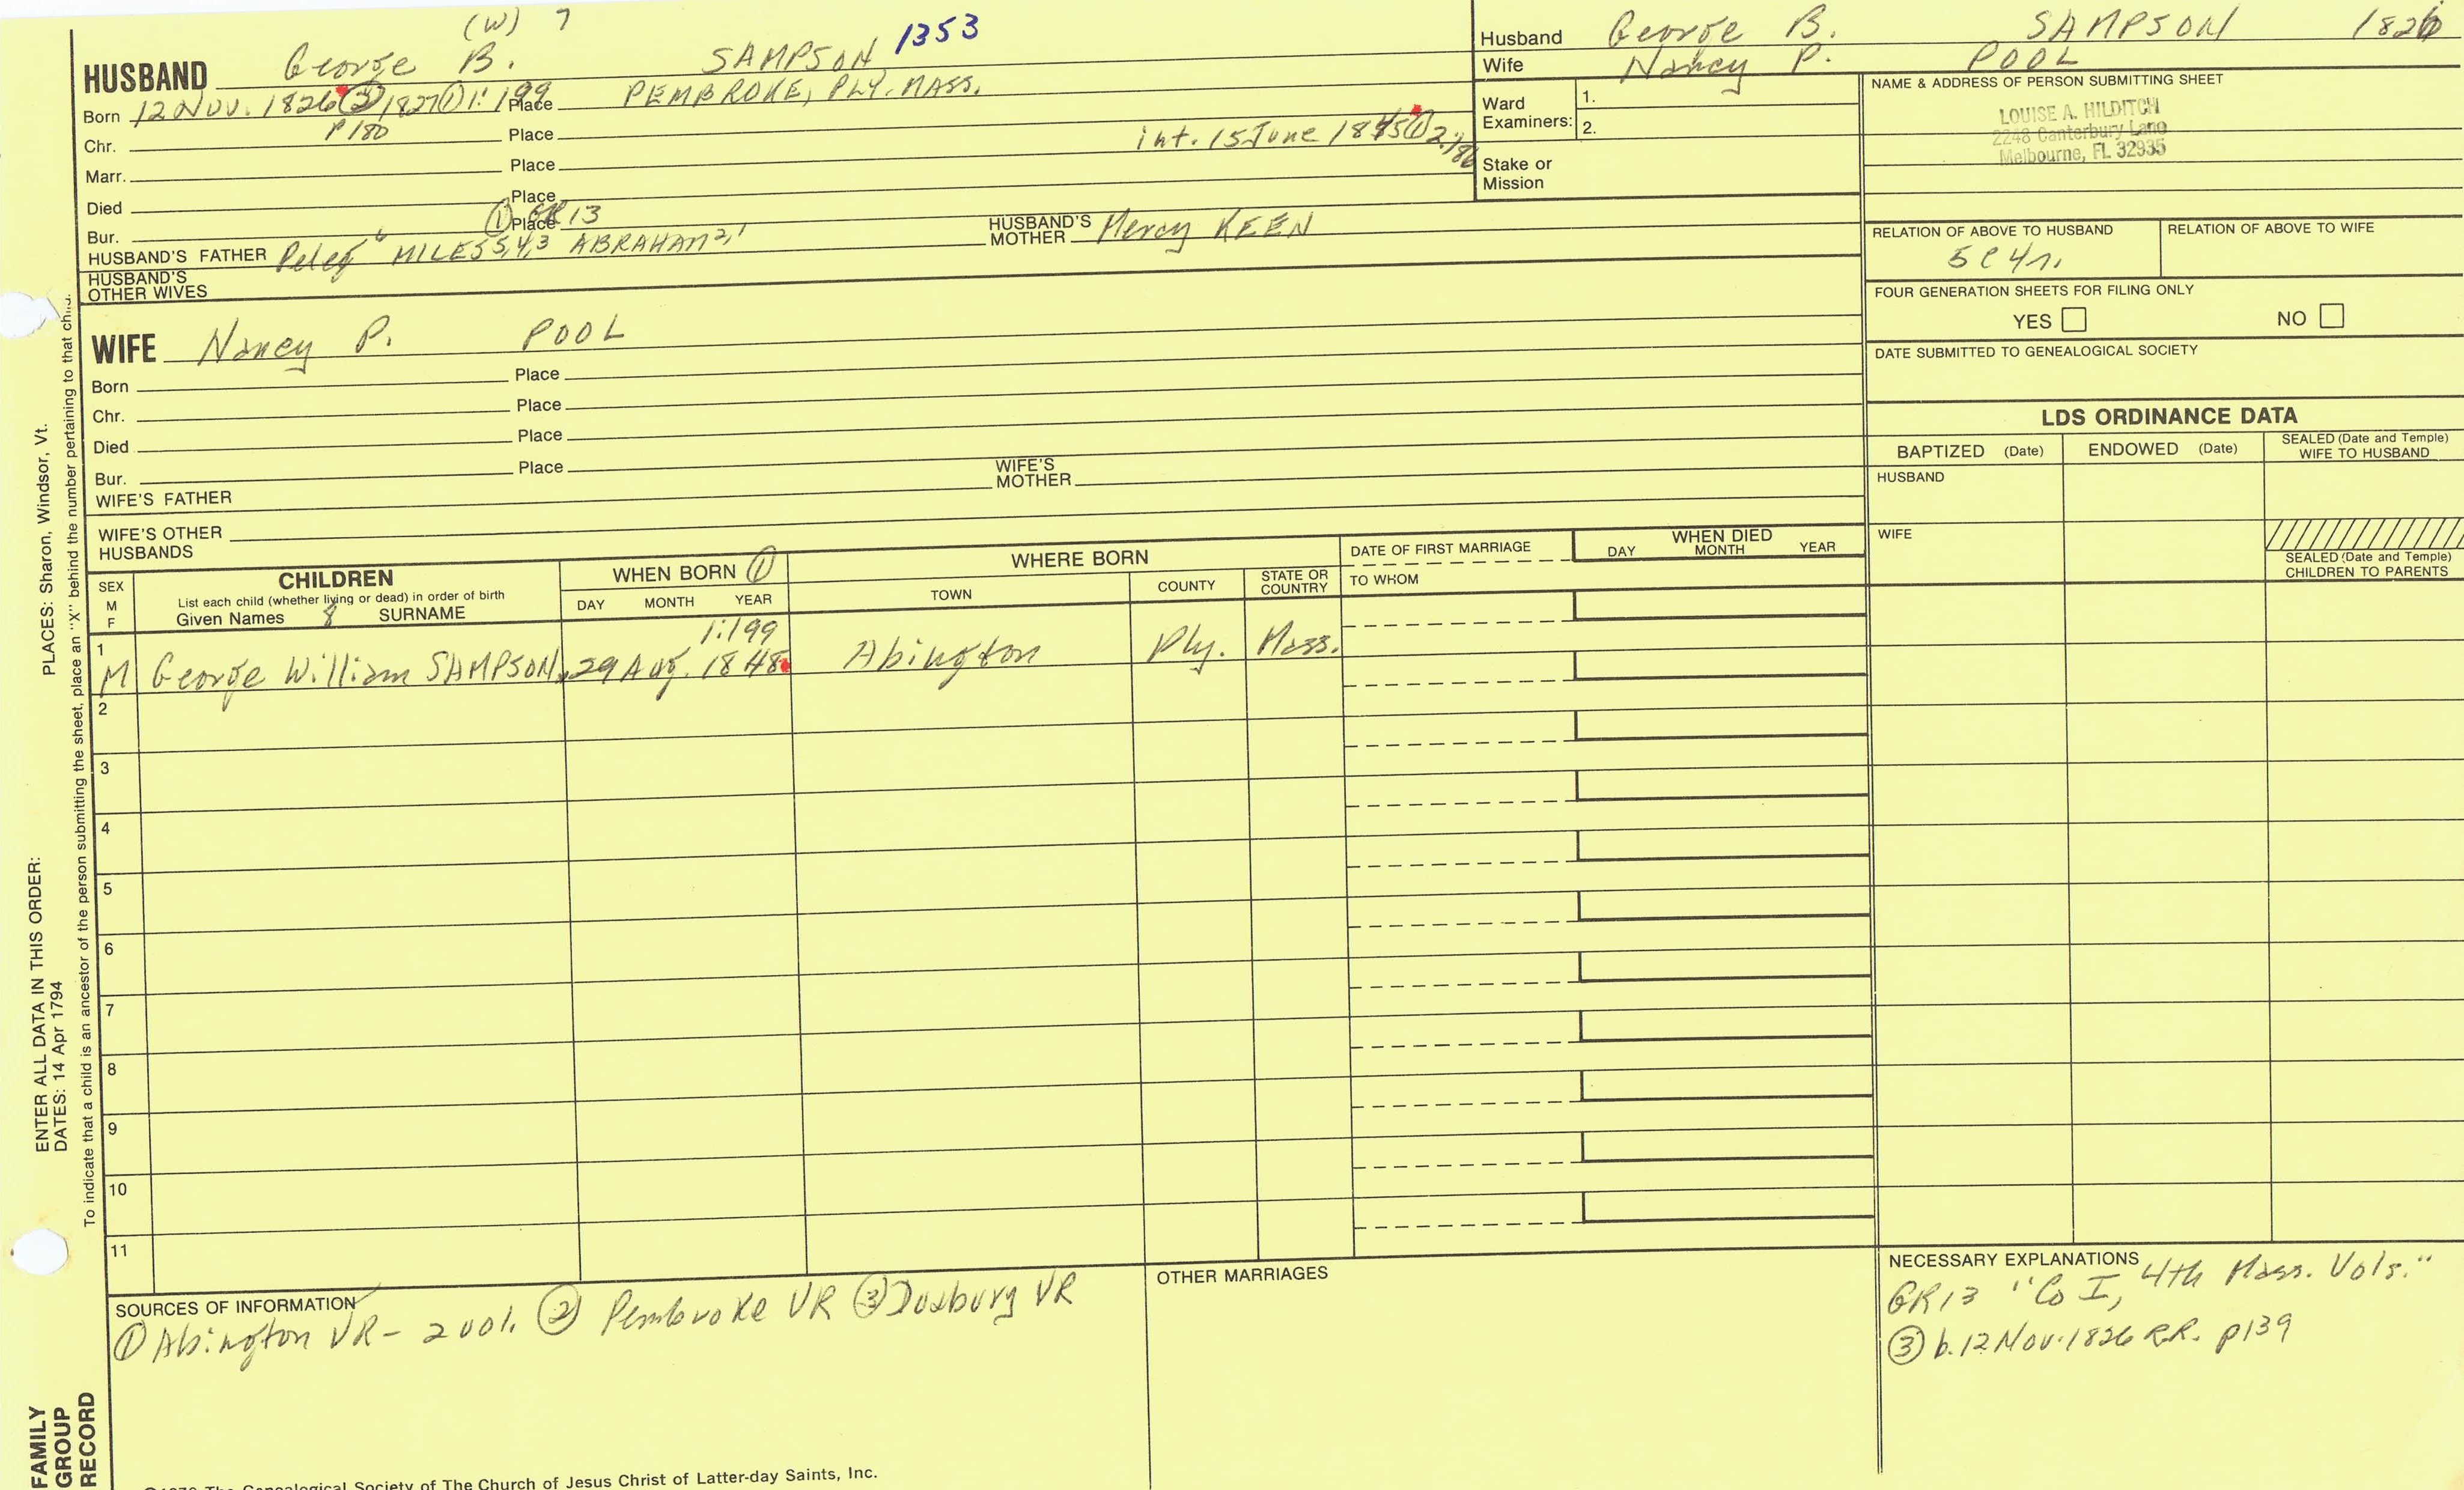 (W) 7
HUSBAND George B. SAMPSON 1353
Born 12 Nov. 1826 ② 1827 ① 1:199 Place PEMBROKE, PLY. MASS.
p180
Chr. Place
int. 15 June 1845 ① 2:186
Marr. Place
Died Place
① GR13
Bur. Place
HUSBAND'S FATHER Peleg 6 MILES 5,4,3 ABRAHAM 2,1 HUSBAND'S MOTHER Mercy KEEN
HUSBAND'S OTHER WIVES
Husband George B. SAMPSON 1826
Wife Nancy P. POOL
Ward Examiners: 1.
2.
Stake or Mission
NAME & ADDRESS OF PERSON SUBMITTING SHEET
LOUISE A. HILDITCH
2248 Canterbury Lane
Melbourne, FL 32935
RELATION OF ABOVE TO HUSBAND RELATION OF ABOVE TO WIFE
5C4r.
FOUR GENERATION SHEETS FOR FILING ONLY
YES NO
DATE SUBMITTED TO GENEALOGICAL SOCIETY
WIFE Nancy P. POOL
Born Place
Chr. Place
Died Place
Bur. Place
WIFE'S FATHER WIFE'S MOTHER
WIFE'S OTHER HUSBANDS
LDS ORDINANCE DATA
BAPTIZED (Date) ENDOWED (Date) SEALED (Date and Temple) WIFE TO HUSBAND
HUSBAND
WIFE
SEALED (Date and Temple) CHILDREN TO PARENTS
SEX M F
CHILDREN
List each child (whether living or dead) in order of birth
Given Names 8 SURNAME
WHEN BORN ①
DAY MONTH YEAR
WHERE BORN
TOWN COUNTY STATE OR COUNTRY
DATE OF FIRST MARRIAGE
TO WHOM
WHEN DIED
DAY MONTH YEAR
1:199
1 M George William SAMPSON 29 Aug. 1848 Abington Ply. Mass.
2
3
4
5
6
7
8
9
10
11
SOURCES OF INFORMATION
① Abington VR - 2 vol. ② Pembroke VR ③ Duxbury VR
OTHER MARRIAGES
NECESSARY EXPLANATIONS
GR13 "Co I, 4th Mass. Vols."
③ b. 12 Nov. 1826 R.R. p139
©1972 The Genealogical Society of The Church of Jesus Christ of Latter-day Saints, Inc.
PLACES: Sharon, Windsor, Vt.
ENTER ALL DATA IN THIS ORDER:
DATES: 14 Apr 1794
To indicate that a child is an ancestor of the person submitting the sheet, place an "X" behind the number pertaining to that child.
FAMILY
GROUP
RECORD